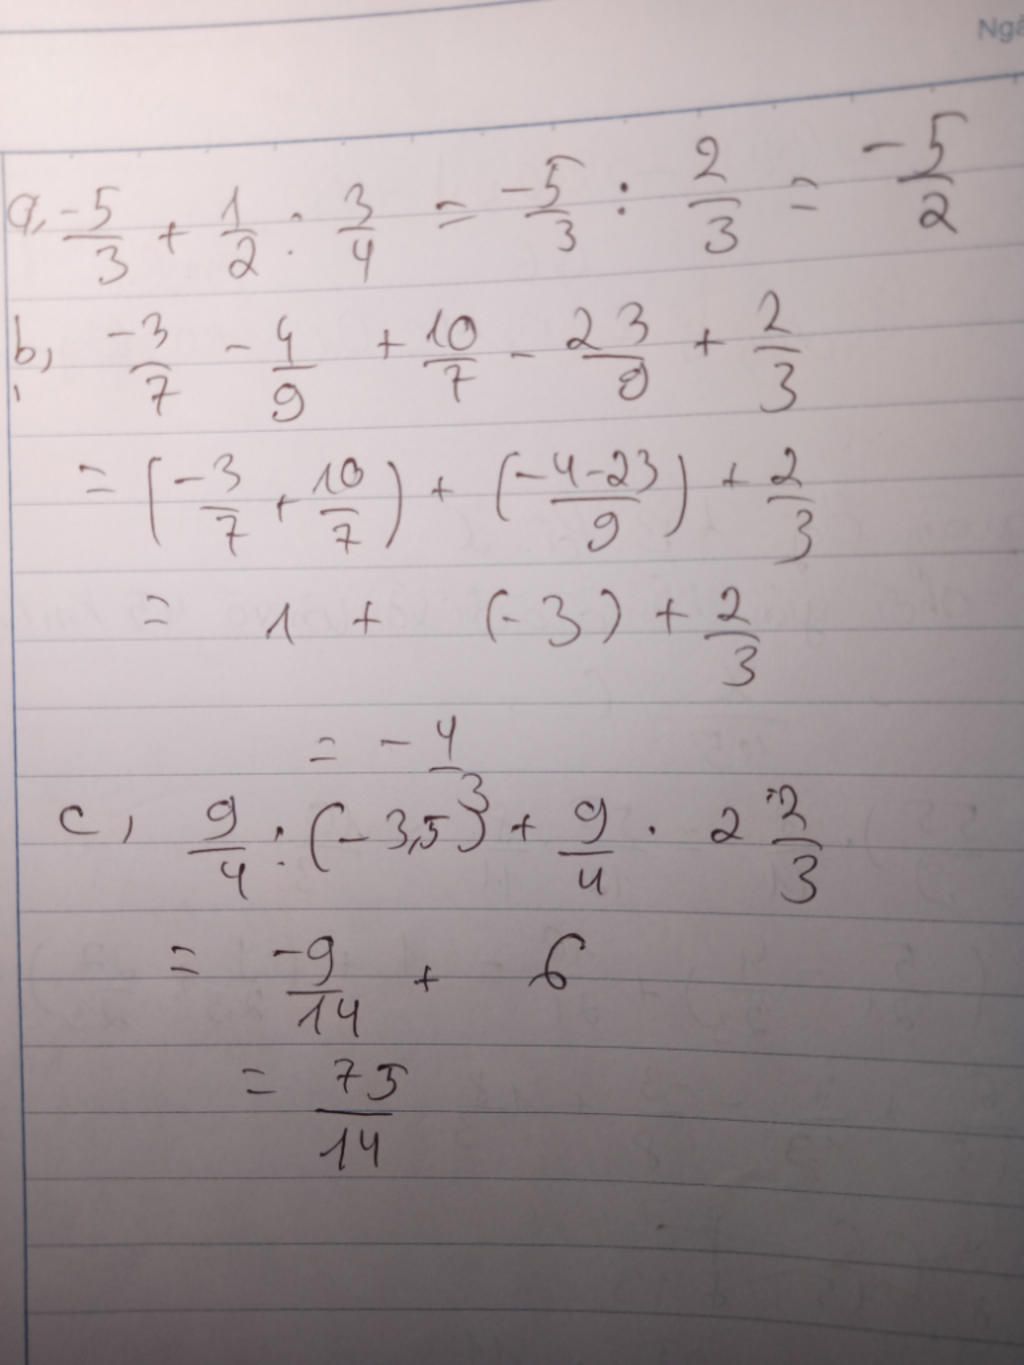 Ngà
a, -5/3 + 1/2 : 3/4 = -5/3 : 2/3 = -5/2
b, -3/7 - 4/9 + 10/7 - 23/9 + 2/3
= (-3/7 + 10/7) + (-4-23/9) + 2/3
= 1 + (-3) + 2/3
= -4/3
c, 9/4 : (-3,5) + 9/4 . 2 2/3
= -9/14 + 6
= 75/14